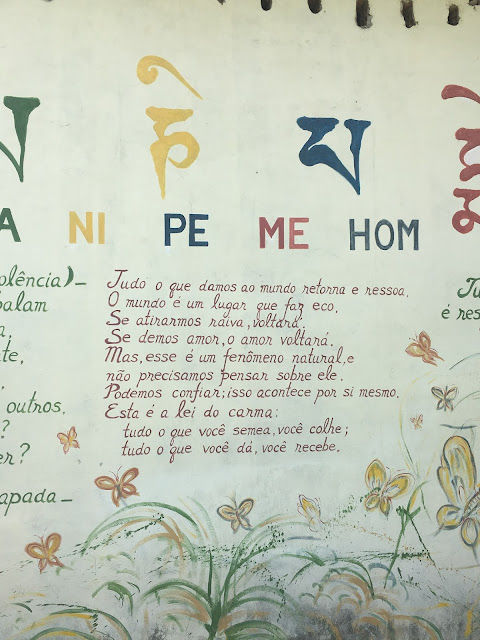 ཎི པ
A NI PE ME HOM
olência)_
balam
outros,
?
er?
apada_
Tudo o que damos ao mundo retorna e ressoa.
O mundo é um lugar que faz eco.
Se atirarmos raiva, voltará.
Se demos amor, o amor voltará.
Mas, esse é um fenômeno natural, e
não precisamos pensar sobre ele.
Podemos confiar; isso acontece por si mesmo.
Esta é a lei do carma:
tudo o que você semea, você colhe;
tudo o que você dá, você recebe.
Tu
é res